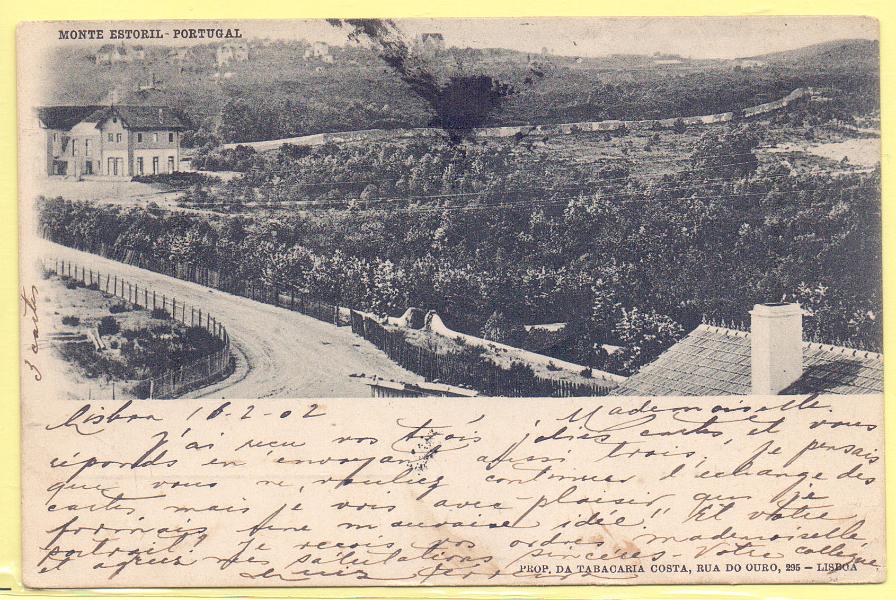 MONTE ESTORIL - PORTUGAL
3 cartes
Lisboa 16-2-02 Mademoiselle.
J'ai reçu vos trois jolies cartes, et vous
réponds en envoyant aussi trois. Je pensais
que vous ne vouliez continuer l'echange des
cartes mais je vois avec plaisir que je
formais une mauvaise idée! Et votre
portrait? Je reçois vos ordres mademoiselle
et agréez mes salutations sinceres - Votre collègue
Luiz Ferreira
PROP. DA TABACARIA COSTA, RUA DO OURO, 295 - LISBOA